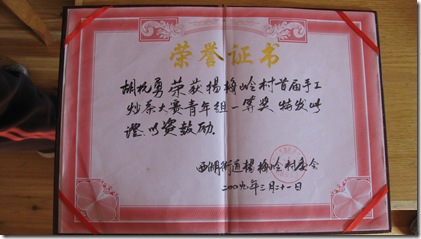 荣誉证书
胡杭勇荣获杨梅岭村首届手工
炒茶大赛青年组一等奖 特发此
證 以资鼓励.
西湖街道杨梅岭村委会
二〇〇九年三月二十一日